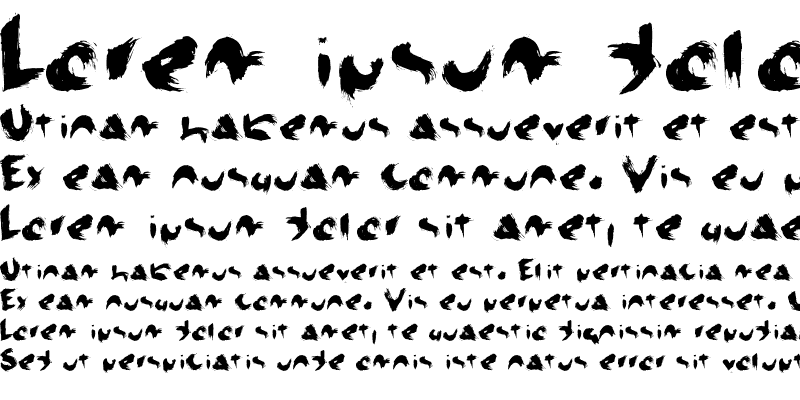 Lorem ipsum dolo
Utinam habemus assueverit et est
Ex eam nusquam commune. Vis eu p
Lorem ipsum dolor sit amet, te quae
Utinam habemus assueverit et est. Elit pertinacia mea
Ex eam nusquam commune. Vis eu perpetua interesset. U
Lorem ipsum dolor sit amet, te quaestio dignissim repudia
Sed ut perspiciatis unde omnis iste natus error sit volupt